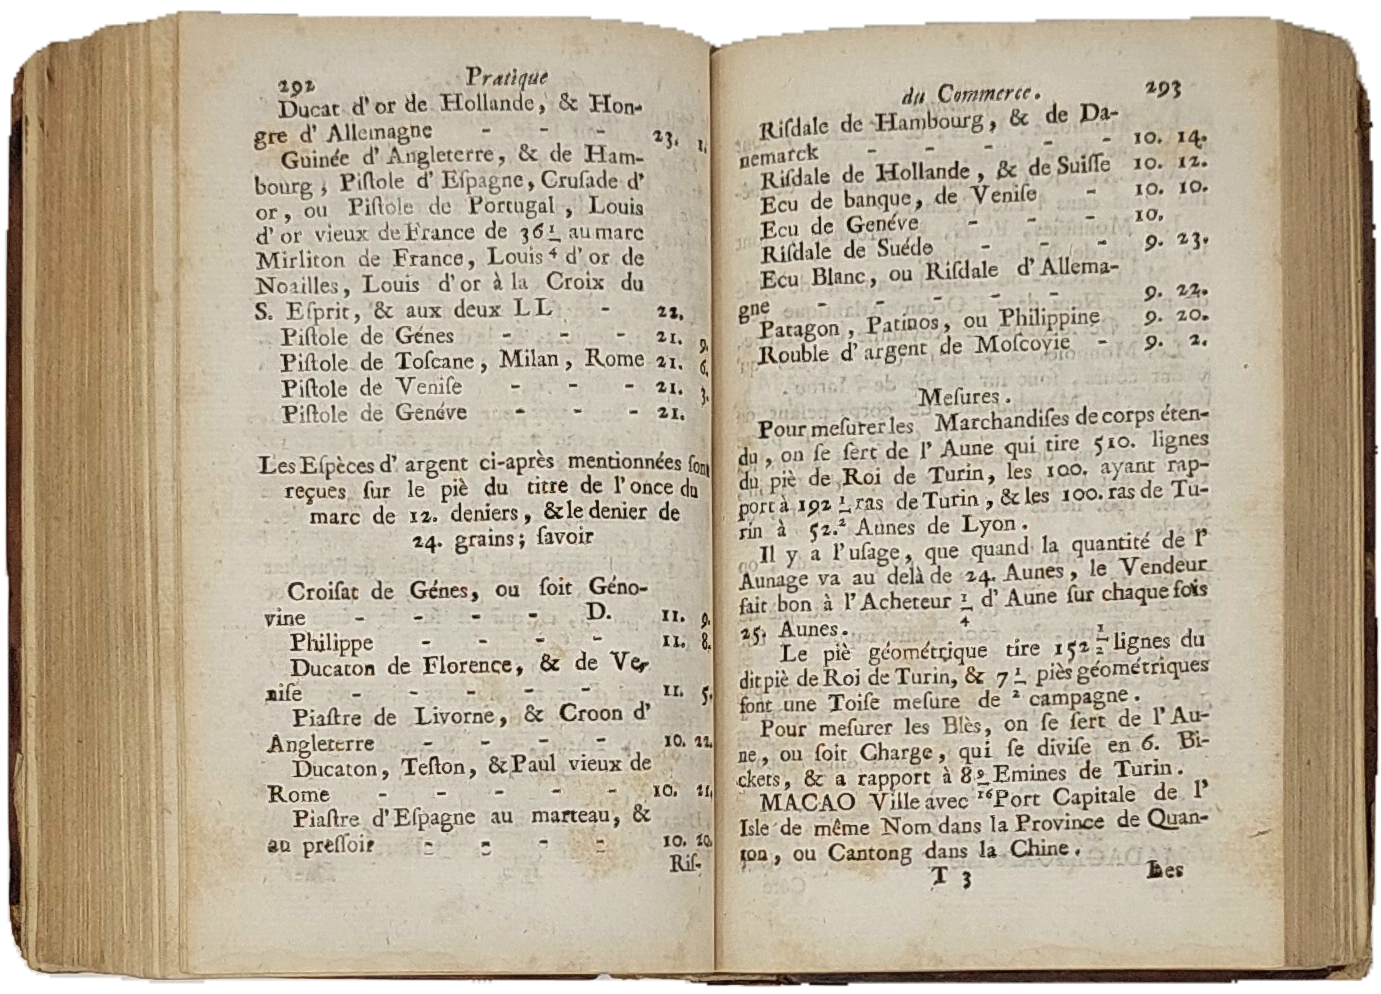 292 Pratique
Ducat d'or de Hollande, & Hon-
gre d'Allemagne - - - 23. 1.
Guinée d'Angleterre, & de Ham-
bourg, Piſtole d'Eſpagne, Cruſade d'
or, ou Piſtole de Portugal, Louis
d'or vieux de France de 36 1/4 au marc
Mirliton de France, Louis d'or de
Noailles, Louis d'or à la Croix du
S. Eſprit, & aux deux LL - 22.
Piſtole de Génes - - - 21. 9.
Piſtole de Toſcane, Milan, Rome 21. 6.
Piſtole de Veniſe - - - 21. 3.
Piſtole de Genéve - - - 21.
Les Eſpèces d'argent ci-après mentionnées ſont
reçues ſur le piè du titre de l'once du
marc de 12. deniers, & le denier de
24. grains; ſavoir
Croiſat de Génes, ou ſoit Géno-
vine - - - - D. 11. 9.
Philippe - - - - 11. 8.
Ducaton de Florence, & de Ve-
niſe - - - - - 11. 5.
Piaſtre de Livorne, & Croon d'
Angleterre - - - - 10. 22.
Ducaton, Teſton, & Paul vieux de
Rome - - - - - 10. 21.
Piaſtre d'Eſpagne au marteau, &
au preſſoir - - - - 10. 20.
Riſ-
du Commerce. 293
Riſdale de Hambourg, & de Da-
nemarck - - - - - 10. 14.
Riſdale de Hollande, & de Suiſſe 10. 12.
Ecu de banque, de Veniſe - 10. 10.
Ecu de Genéve - - - 10.
Riſdale de Suéde - - - 9. 23.
Ecu Blanc, ou Riſdale d'Allema-
gne - - - - - 9. 22.
Patagon, Patinos, ou Philippine 9. 20.
Rouble d'argent de Moſcovie - 9. 2.
Meſures.
Pour meſurer les Marchandiſes de corps éten-
du, on ſe ſert de l'Aune qui tire 510. lignes
du piè de Roi de Turin, les 100. ayant rap-
port à 192 1/2 ras de Turin, & les 100. ras de Tu-
rin à 52. Aunes de Lyon.
Il y a l'uſage, que quand la quantité de l'
Aunage va au delà de 24. Aunes, le Vendeur
fait bon à l'Acheteur 1/4 d'Aune ſur chaque fois
25. Aunes.
Le piè géométrique tire 152 1/2 lignes du
dit piè de Roi de Turin, & 7 1/2 piès géométriques
font une Toiſe meſure de campagne.
Pour meſurer les Blès, on ſe ſert de l'Au-
ne, ou ſoit Charge, qui ſe diviſe en 6. Bi-
ckets, & a rapport à 8 9/16 Emines de Turin.
MACAO Ville avec Port Capitale de l'
Isle de même Nom dans la Province de Quan-
ton, ou Cantong dans la Chine.
T 3 Les